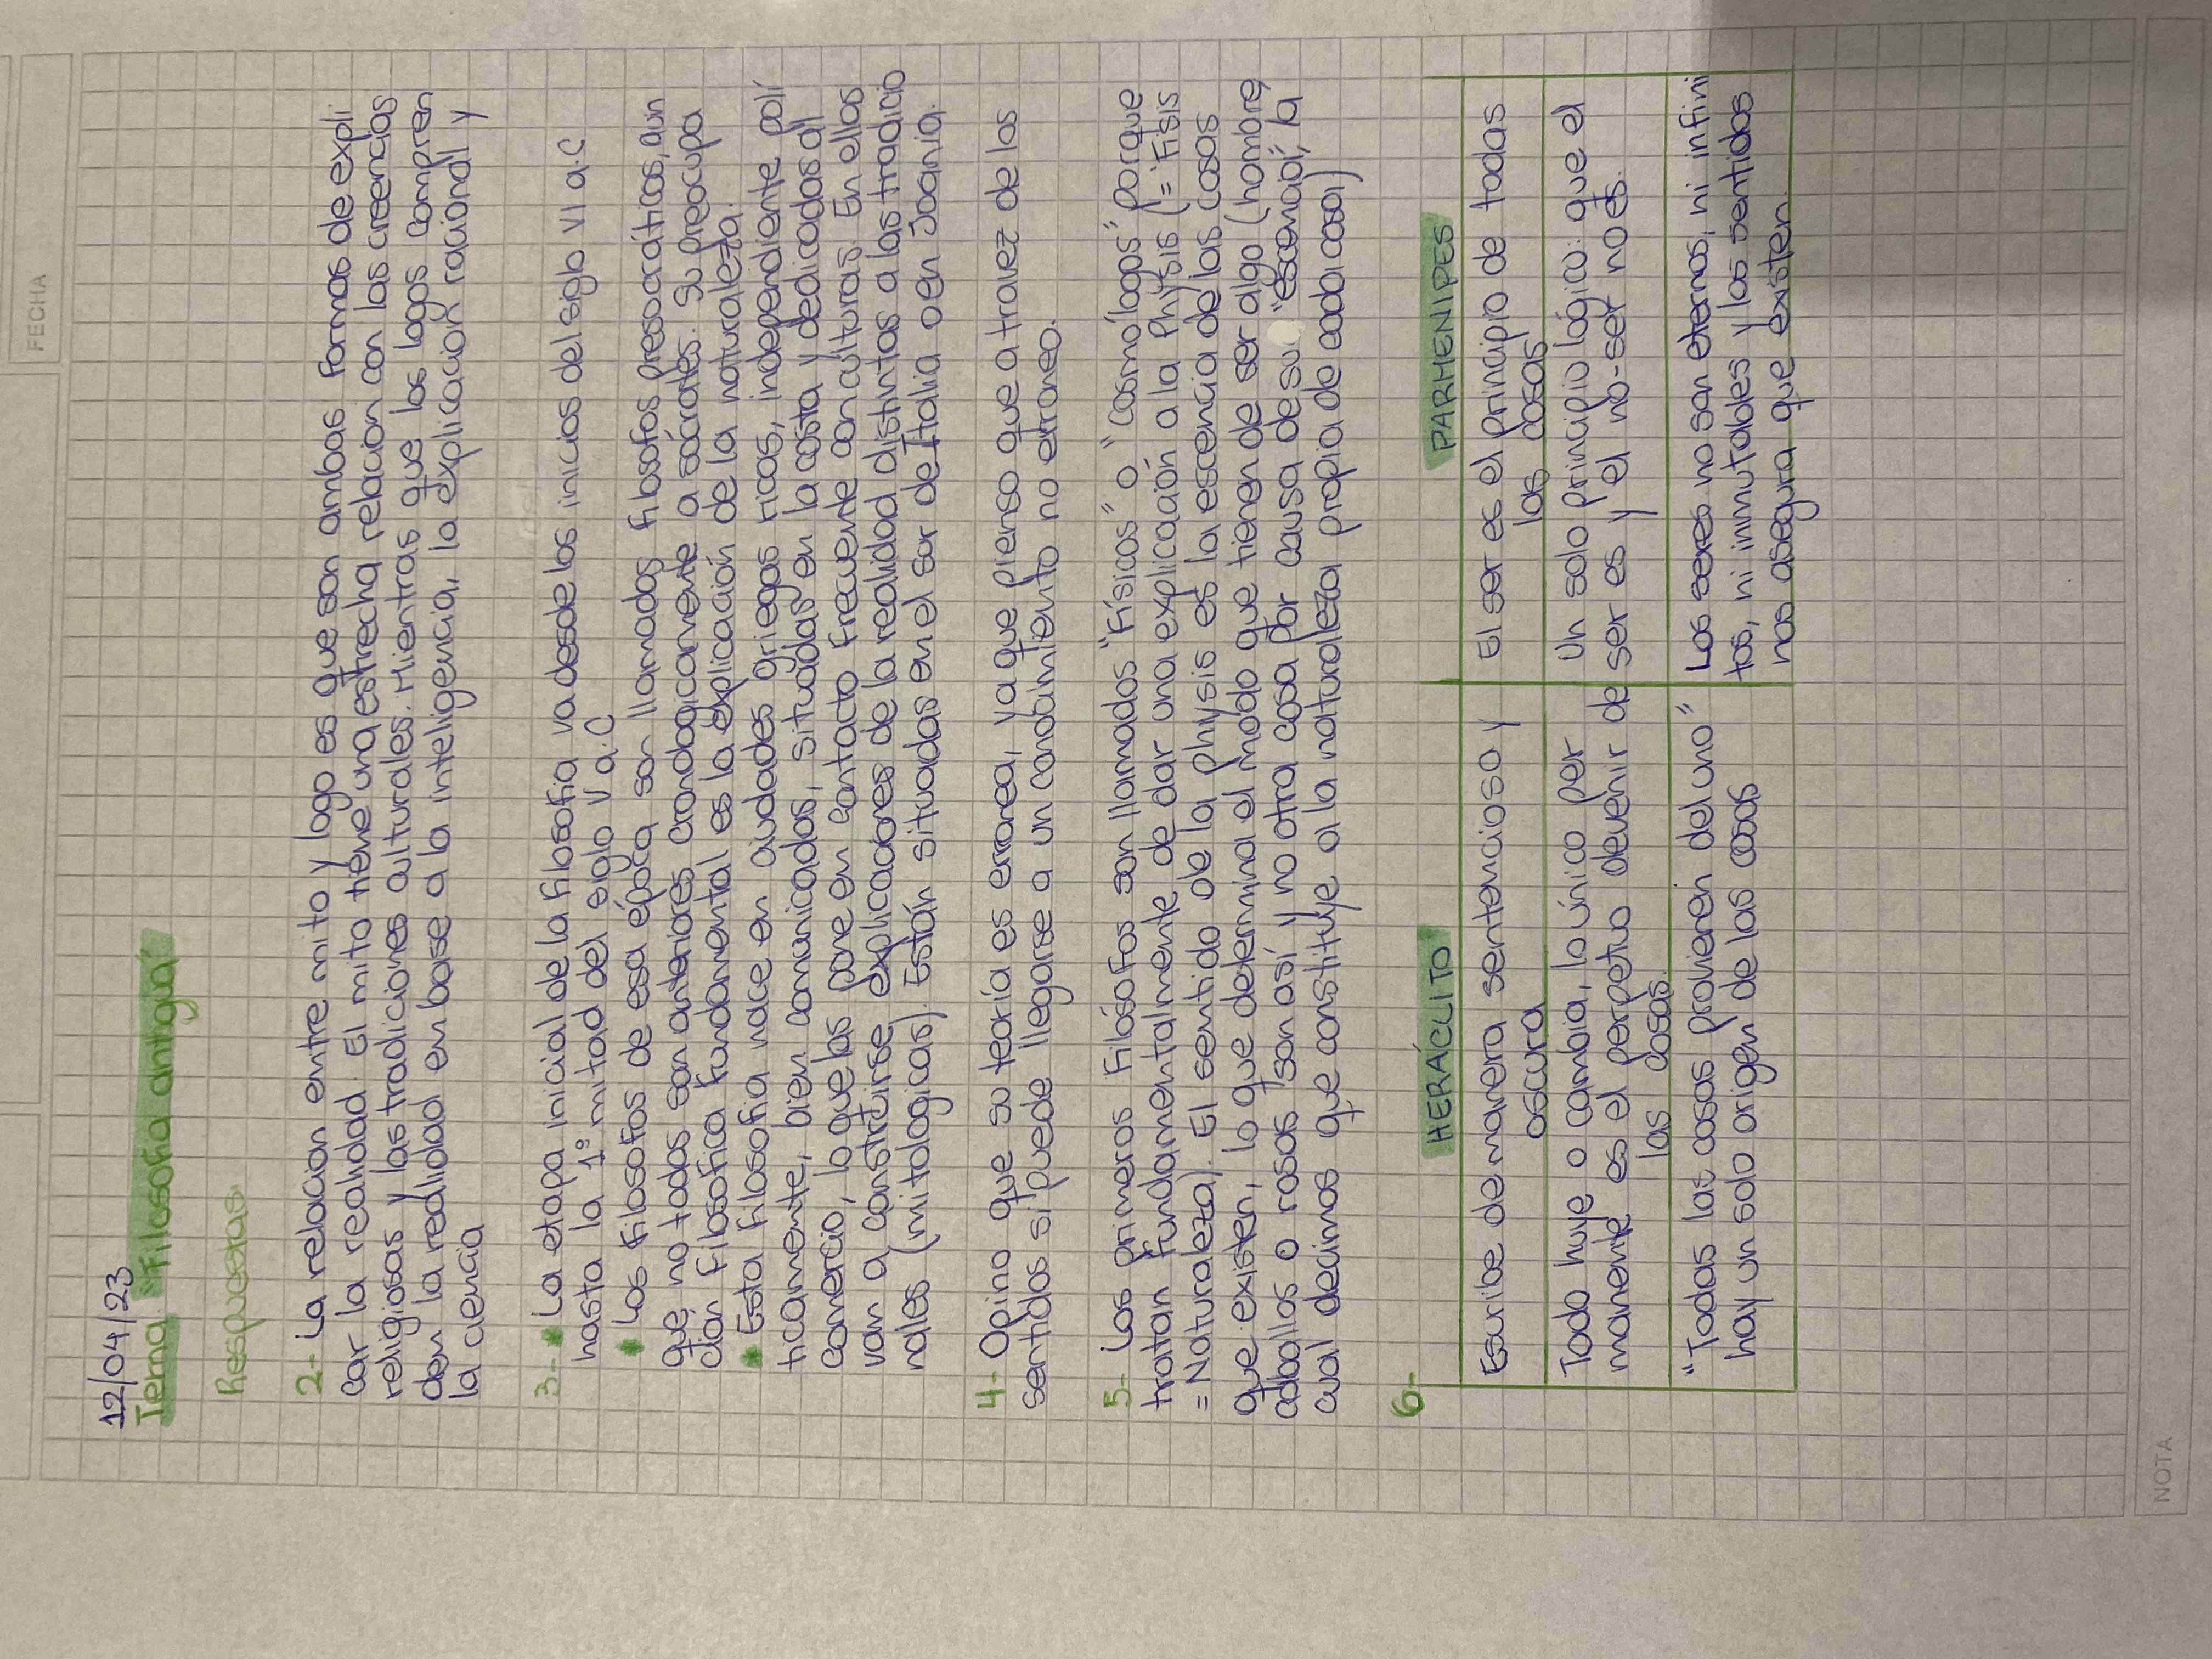 FECHA
12/04/23
Tema "Filosofía antigua"
Respuestas:
2- La relacion entre mito y logo es que son ambas formas de expli
car la realidad. El mito tiene una estrecha relacion con las creencias
religiosas y las tradiciones culturales. Mientras que los logos compren
den la realidad en base a la inteligencia, la explicación racional y
la ciencia
3- • La etapa inicial de la filosofia va desde los inicios del siglo VI a.C
hasta la 1° mitad del siglo V a.C
• Los filosofos de esa época son llamados filosofos presocráticos, aun
que no todos son anteriores cronologicamente a sócrates. Su preocupa
cion filosofica fundamental es la explicación de la naturaleza.
• Esta filosofia nace en ciudades griegas ricas, independiente polí
ticamente, bien comunicadas, situadas en la costa y dedicadas al
comercio, lo que las pone en contacto frecuente con culturas. En ellas
van a construirse explicaciones de la realidad distintas a las tradicio
nales (mitologicas). Están situadas en el sur de Italia o en Joania.
4- Opino que su teoría es erronea, ya que pienso que a travez de los
sentidos si puede llegarse a un conocimiento no erroneo.
5- Los primeros Filósofos son llamados "Físicos" o "cosmólogos" porque
tratan fundamentalmente de dar una explicación a la Physis (= Fisis
= Naturaleza). El sentido de la physis es la escencia de las cosas
que existen, lo que determina el modo que tienen de ser algo (hombre
caballos o rosas son así y no otra cosa por causa de su "escencia", la
cual decimos que constituye a la naturaleza propia de cada cosa)
6-
HERÁCLITO PARMENIDES
Escribe de manera sentencioso y El ser es el principio de todas
oscura las cosas
Todo huye o cambia, lo único per Un solo principio lógico: que el
manente es el perpetuo devenir de ser es y el no-ser no es.
las cosas.
"Todas las cosas provienen del uno" Los seres no son eternos, ni infini
hay un solo origen de las cosas tos, ni inmutables y los sentidos
nos asegura que existen.
NOTA